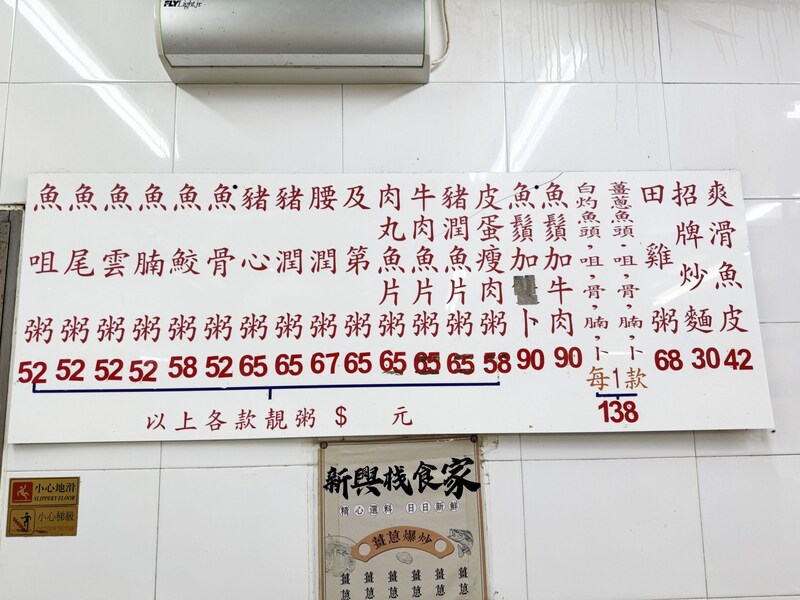 FLYLight.jr
魚咀粥 52
魚尾粥 52
魚雲粥 52
魚腩粥 52
魚鮫粥 58
魚骨粥 52
豬心粥 65
豬潤粥 65
腰潤粥 67
及第粥 65
肉丸魚片粥 65
牛肉魚片粥 65
豬潤魚片粥 65
皮蛋瘦肉粥 58
以上各款靚粥 $ 元
魚鬚加卜 90
魚鬚加牛肉 90
白灼魚頭，咀，骨，腩，卜
薑蔥魚頭，咀，骨，腩，卜
每1款
138
田雞粥 68
招牌炒麵 30
爽滑魚皮 42
小心地滑
SLIPPERY FLOOR
小心梯級
新興棧食家
精心選料 日日新鮮
薑蔥爆炒
薑 薑 薑 薑 薑
蔥 蔥 蔥 蔥 蔥